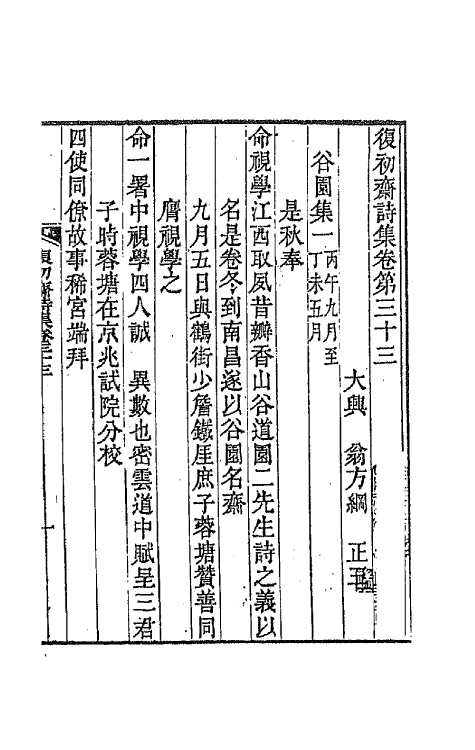 復初齋詩集卷第三十三
大興 翁方綱 正三
谷園集一丙午九月至丁未五月
是秋奉
命視學江西取夙昔瓣香山谷道園二先生詩之義以
名是卷冬到南昌遂以谷園名齋
九月五日與鶴街少詹鐵厓庶子蓉塘贊善同
膺視學之
命一署中視學四人誠 異數也密雲道中賦呈三君
子時蓉塘在京兆試院分校
四使同僚故事稀宮端拜
復初齋詩集卷三十三
一